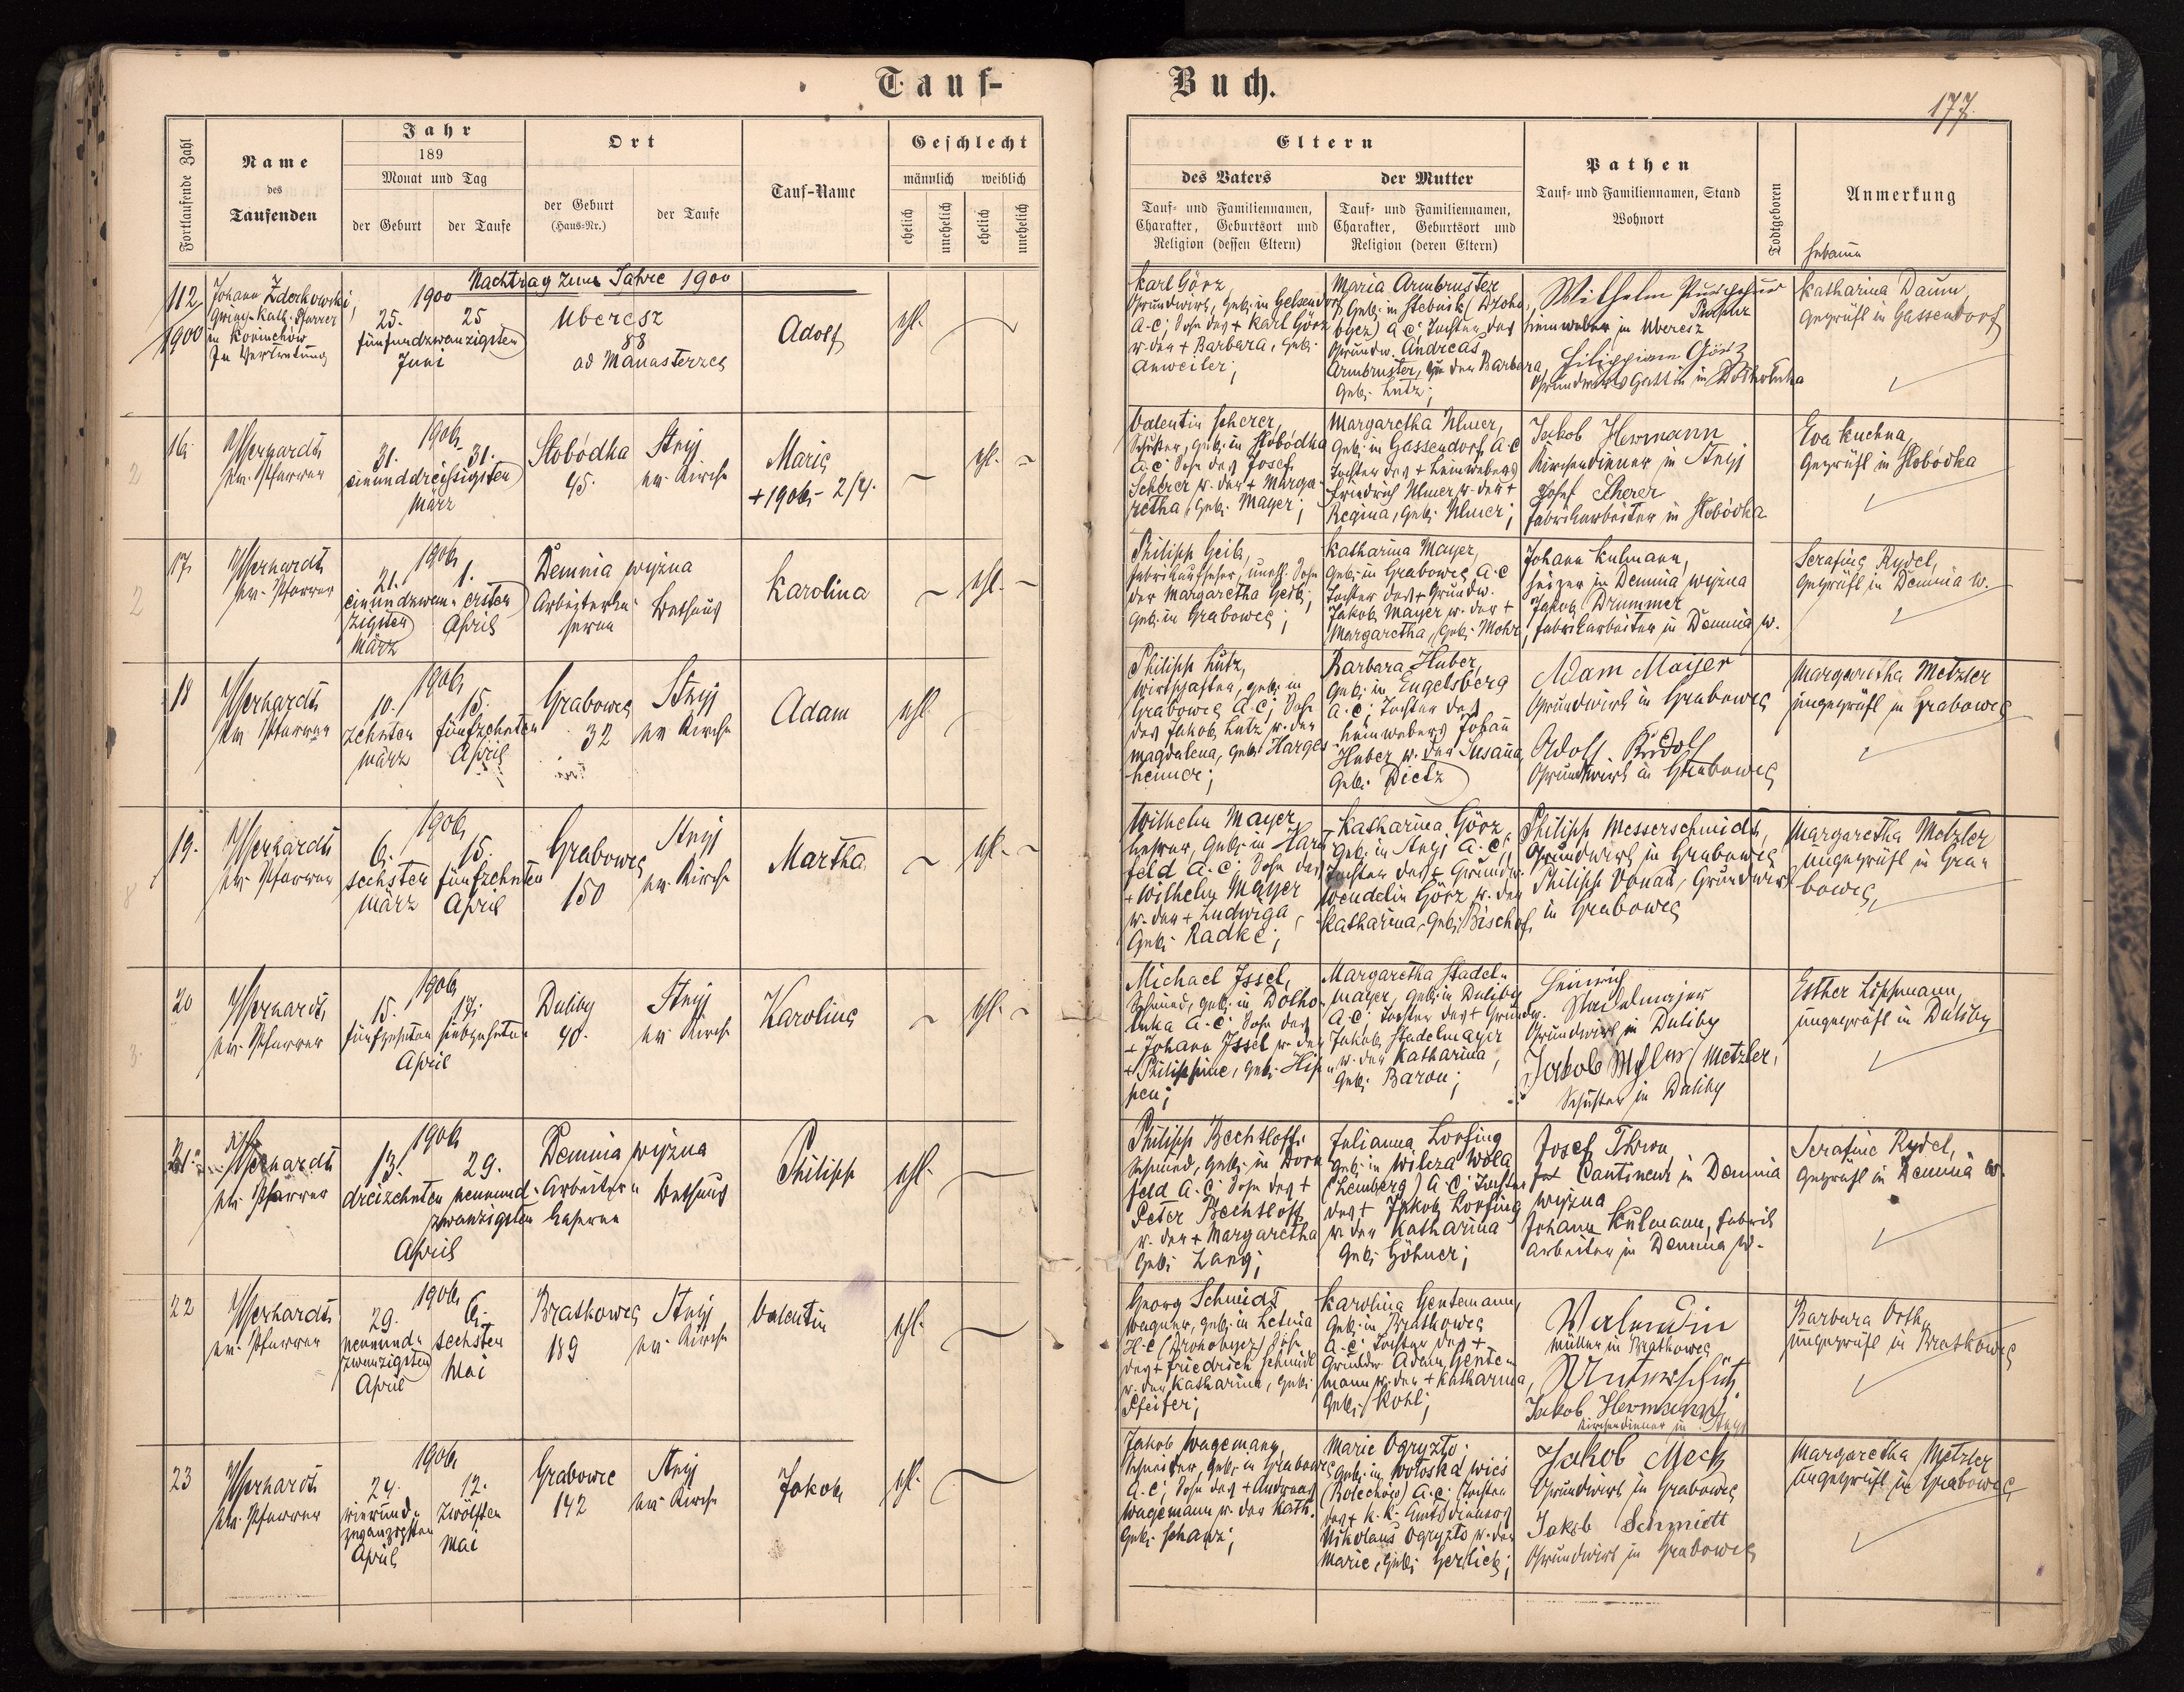 Tauf-
Buch.
177.
Fortlaufende Zahl
Name
des
Taufenden
Jahr
189
Monat und Tag
der Geburt
der Taufe
Ort
der Geburt
(Haus-Nr.)
der Taufe
Tauf-Name
Geschlecht
männlich
weiblich
ehelich
unehelich
ehelich
unehelich
Eltern
des Vaters
Tauf- und Familiennamen,
Charakter, Geburtsort und
Religion (dessen Eltern)
der Mutter
Tauf- und Familiennamen,
Charakter, Geburtsort und
Religion (deren Eltern)
Pathen
Tauf- und Familiennamen, Stand
Wohnort
Todtgeboren
Anmerkung
Hebamme
Nachtrag zum Jahre 1900
112/
1900
Johann Zderkowski,
Pfarrer
in
In Vertretung
1900
25.
25
fünfundzwanzigsten
Juni
Uberesz
88
ad Manasterzec
Adolf
ehl.
Karl Görz,
Grundwirt, geb. in Gelsendorf
A.C; Sohn des + Karl Görz
u. der + Barbara, geb.
Anweiler;
Maria Armbruster,
geb. in Stebnik, Droho
bycz) A.C; Tochter des
Grundw. Andreas
Armbruster, u. der Barbara,
geb. Lutz;
Wilhelm
Leinweber in Uberesz
Filippine Görz
Grundwirts Gattin in Dolholuka
Katharina Daum
geprüft in Gassendorf
16.
Gerhardt
ev. Pfarrer
1906
31.
31.
einunddreißigsten
März
Slobódka
45.
Stryj
ev. Kirche
Marie
+ 1906 - 2/4.
ehl.
Valentin Scherer,
Schuster, geb. in Slobódka
A.C. Sohn des Josef
Scherer u. der + Marga-
retha, geb. Mayer;
Margaretha Ulmer,
geb. in Gassendorf, A.C
Tochter des + Leinwebers
Friedrich Ulmer u. der +
Regina, geb. Ulmer;
Jakob Hermann
Kirchendiener in Stryj
Josef Scherer
Fabrikarbeiter in Slobódka
Eva Kuchna,
geprüft in Slobódka
17.
Gerhardt
ev. Pfarrer
1906
21.
1.
einundzwan-
zigsten
März
ersten
April
Demnia wyżna
Arbeiterka-
serne
Bethaus
Karolina
ehl.
Philipp Geib,
Fabrikaufseher, unehl. Sohn
der Margaretha Geib;
geb. in Grabowec;
Katharina Mayer,
geb. in Grabowec A.C
Tochter des + Grundw.
Jakob Mayer u. der +
Margaretha, geb. Mohr;
Johann Kulmann,
Heizer in Demnia wyżna
Jakob Drummer
Fabrikarbeiter in Demnia w.
Serafine Rydel,
geprüft in Demnia w.
18
Gerhardt
ev. Pfarrer
1906
10.
15.
zehnten
März
fünfzehnten
April
Grabowec
32
Stryj
ev. Kirche
Adam
ehl.
Philipp Lutz,
Wirtschafter, geb. in
Grabowec A.C; Sohn
des Jakob Lutz u. der
Magdalena, geb. Harges-
heimer;
Barbara Huber,
geb. in Engelsberg
A.C. Tochter des
Leinwebers Johann
Huber u. der Susanna,
geb. Dietz
Adam Maijer
Grundwirt in Grabowec
Adolf Rudolf
Grundwirt in Grabowec
Margaretha Metzler
ungeprüft in Grabowec
19.
Gerhardt
ev. Pfarrer
1906
6.
15.
sechsten
März
fünfzehnten
April
Grabowec
150
Stryj
ev. Kirche
Martha
ehl.
Wilhelm Mayer,
Lehrer, geb. in Hart-
feld A.C. Sohn des
+ Wilhelm Mayer
u. der + Ludwiga
geb. Radke;
Katharina Görz,
geb. in Stryj A.C;
Tochter des + Grundw.
Wendelin Görz u. der
Katharina, geb. Bischof,
Philipp Messerschmidt,
Grundwirt in Grabowec
Philipp Donat, Grundwirt
in Grabowec
Margaretha Metzler
ungeprüft in Gra-
bowec,
20
Gerhardt,
ev. Pfarrer
1906
15.
17.
fünfzehnten
siebzehnten
April
Duliby
40.
Stryj
ev. Kirche
Karoline
ehl.
Michael Issel,
Schmied, geb. in Dolho-
luka A.C. Sohn des
+ Johann Issel u. der
+ Philippine, geb. Hip-
pen;
Margaretha Stadel-
mayer, geb. in Duliby
A.C. Tochter des + Grundw.
Jakob Stadelmayer
u. der Katharina,
geb. Baron;
Heinrich
Stadelmajer
Grundwirt in Duliby
Jakob (Metzler,
Schuster in Duliby
Esther Lippmann,
ungeprüft in Duliby
21.
Gerhardt
ev. Pfarrer
1906
13.
29.
dreizehnten
neunund-
zwanzigsten
April
Demnia wyżna
Arbeiter-
kaserne
Bethaus
Philipp
ehl.
Philipp Bechtloff,
Schmied, geb. in Dorn-
feld A.C. Sohn des +
Peter Bechtloff
u. der + Margaretha
geb. Lang;
Julianna Lorfing
geb. in Wilcza Wola
(Lemberg) A.C. Tochter
des + Jakob Lorfing
u. der Katharina
geb. Göhner;
Josef
Cantineur in Demnia
wyżna
Johann Kulmann, Fabrik
arbeiter in Demnia w.
Serafine Rydel,
geprüft in Demnia w.
22
Gerhardt
ev. Pfarrer
1906
29.
6.
neunund-
zwanzigsten
April
sechsten
Mai
Bratkowce
189
Stryj
ev. Kirche
Valentin
ehl.
Georg Schmidt
Wagner, geb. in Letnia
H.C (Drohobycz) Sohn
des + Friedrich Schmidt
u. der Katharina, geb.
Pfeifer;
Karolina Gentemann,
geb. in Bratkowce
A.C. Tochter des +
Grundw. Adam Gente-
mann u. der + Katharina,
geb. Kohl;
Valendin
Müller in Bratkowce
Unterschütz
Jakob Hermann
Kirchendiener in Stryj
Barbara Orth,
ungeprüft in Bratkowce
23
Gerhardt
ev. Pfarrer
1906
24.
12.
vierund-
zwanzigsten
April
zwölften
Mai
Grabowce
142
Stryj
ev. Kirche
Jakob
ehl.
Jakob Wagemann,
Schneider, geb. in Grabowce
A.C; Sohn des + Andreas
Wagemann u. der Kath.
geb. Schanz;
Marie Ogryzło
geb. in Wołoska wieś
(Bolechów) A.C. Tochter
des + k. k. Amtsdieners
Nikolaus Ogryzło u. der
Marie, geb. Gerlich;
Jakob Meck
Grundwirt in Grabowce
Jakob Schmidt
Grundwirt in Grabowce
Margaretha Metzler
ungeprüft in Grabowce